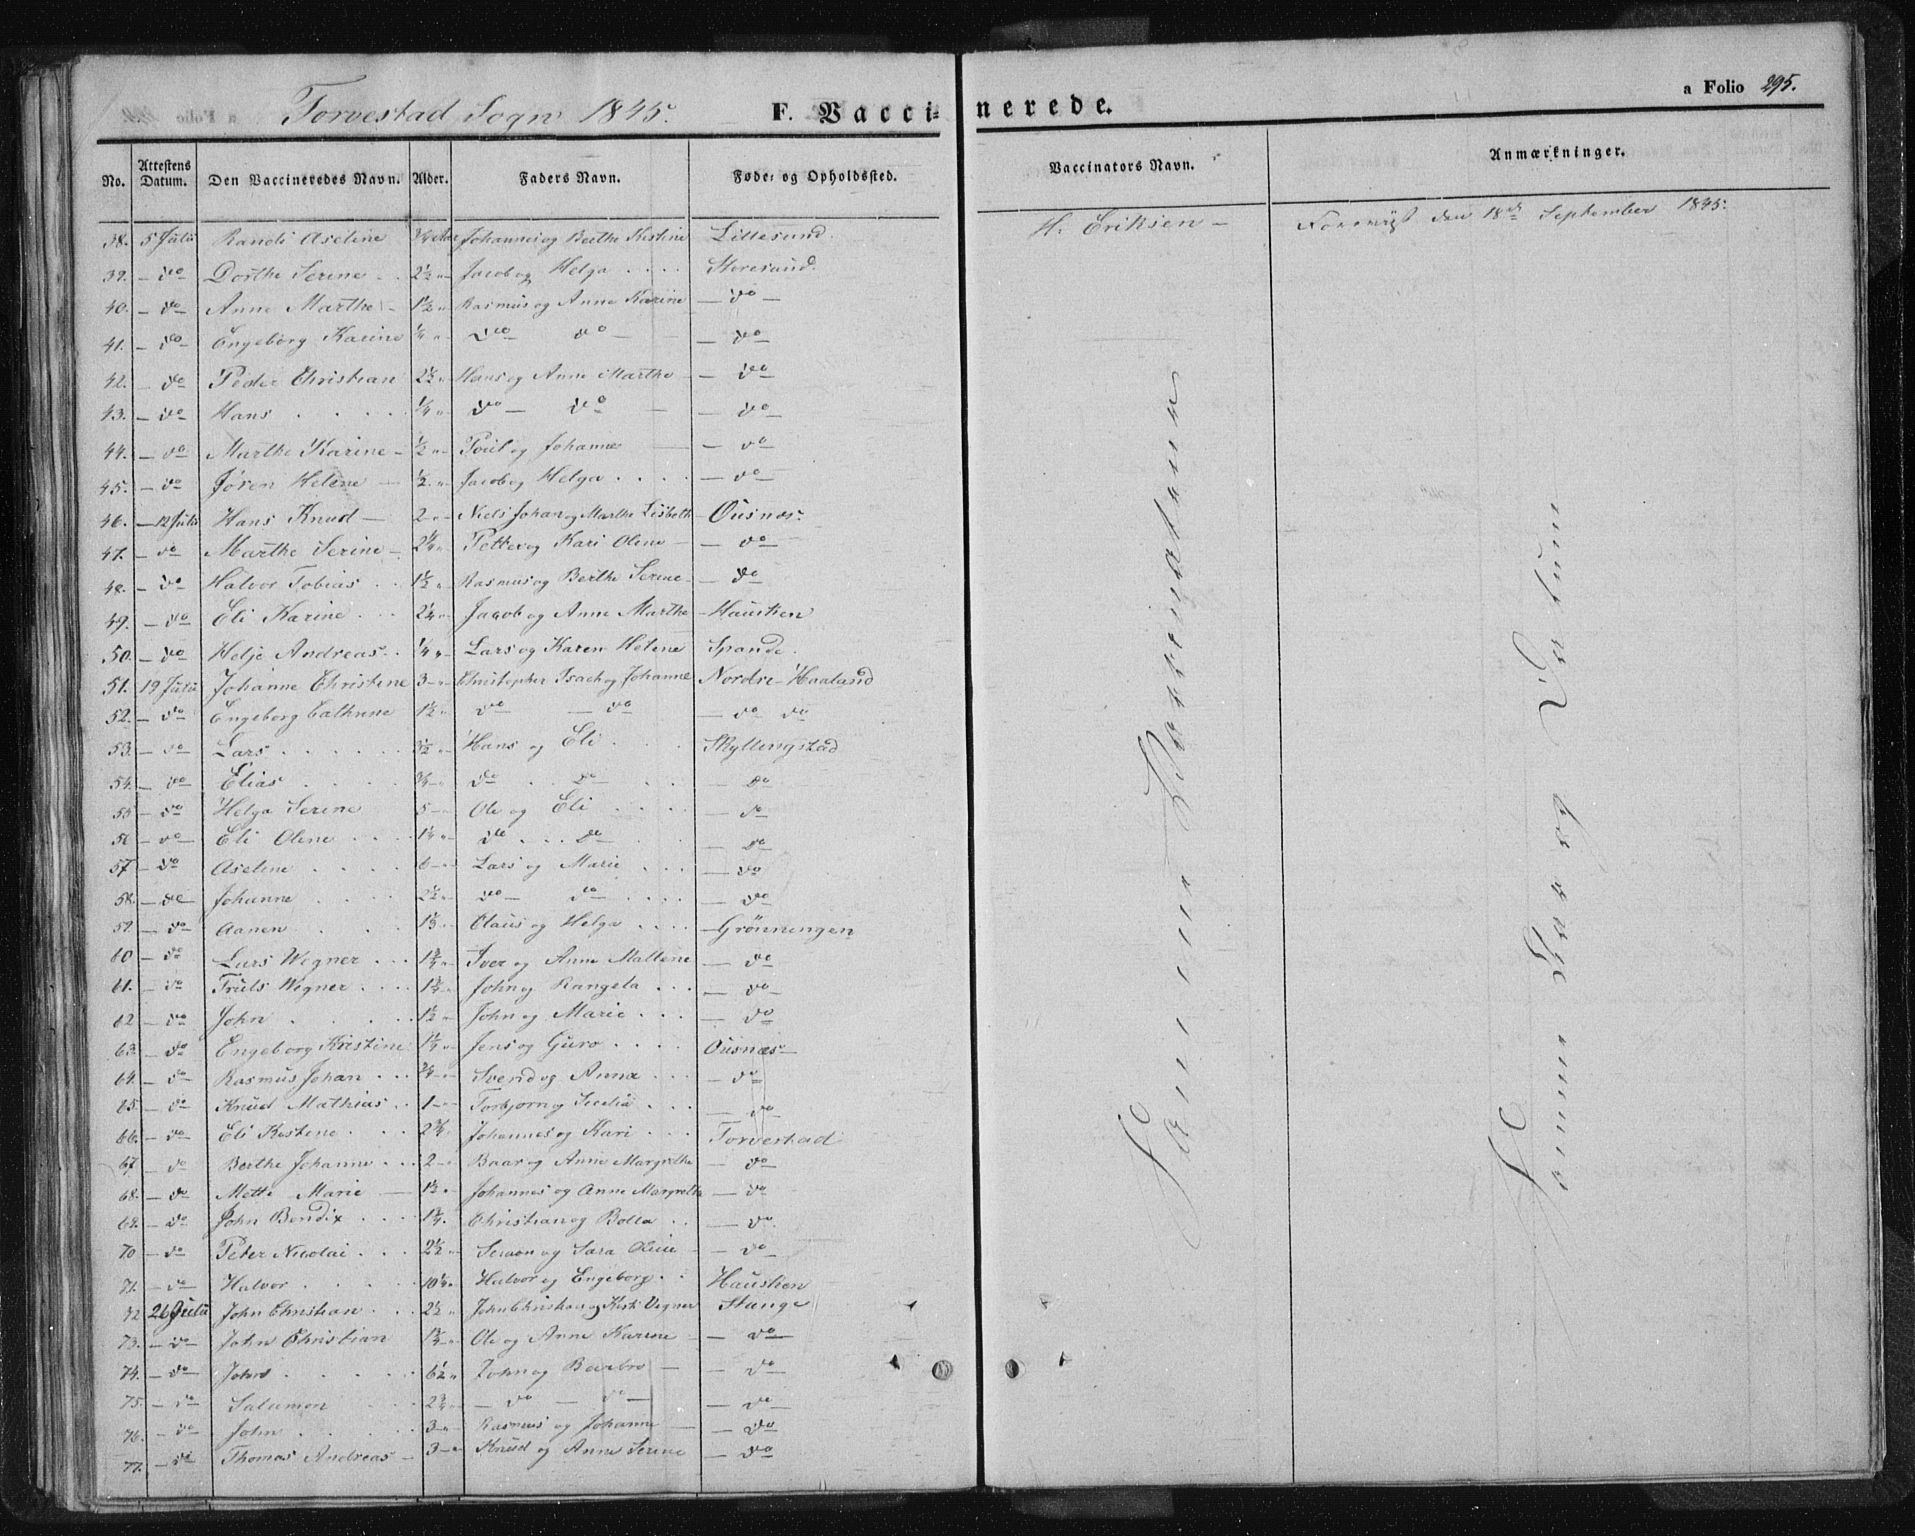 Torvestad Sogn 1845. F. Vaccinerede. a Folio 295.
No. Attestens Datum. Den Vaccineredes Navn. Alder. Faders Navn. Føde- og Opholdssted. Vaccinators Navn. Anmærkninger.
38. 5 Julii Randi Aseline 3/4 Aar Johannes og Berthe Kistine Littesund. H. Eriksen - den 18de September 1845.
39. - do Dorthe Serine 2 1/2 " Jacob og Helga Storesund.
40. - do Anne Marthe - 1 1/2 " Rasmus og Anne Karine - do -
41. - do Engeborg Karine 1/4 " do do - do
42. - do Peder Christian 2 1/2 " Hans og Anne Marthe - do
43. - do Hans 1/4 " do - do - do
44. - do Marthe Karine - 1/2 " Poul og Johanne - do
45. - do Jøren Helene 1/2 " Jacob og Helga - do
46. - 12 Julii Hans Knud - 2 - " Niels Johan og Marthe Lisbeth Ousnæs.
47. - do Marthe Serine - 2 1/4 " Petter og Kari Olene - - do
48. - do Halvor Tobias 1 1/2 " Rasmus og Berthe Serine - do
49. - do Eli Karine 2 1/4 " Jacob og Anne Marthe - Hausken
50. - do Helje Andreas 1/4 " Lars og Karen Helene Spande.
51. 19 Julii Johanne Christine 3 - " Christopher Isach og Johanne Nordre-Haaland
52. - do Engeborg Cathrine 1 1/2 " do - do - do do
53. - do Lars 3 1/2 " Hans og Eli Skyllingstad
54. - do Elias 3/4 - do do - do
55 - do Helga Serine 5 - Ole og Eli - do
56 - do Eli Olene 1 1/4 " do do - do
57 - do Aseline 6 - " Lars og Marie - do
58. - do Johanne 2 1/2 " do - do - do
59. - do Aanen Claus og Helga - Grönningen
60 - do Lars Wegner 1 3/4 " Iver og Anne Mallene - do
61. - do Truls Wegner 1 3/4 " John og Rangela - do
62 - do John 1 1/2 " John og Marie - do
63. - do Engeborg Kristine 1 1/4 " Jens og Guro Ousnæs
64. - do Rasmus Johan 3/4 - " Svend og Anna - do
65 - do Knud Mathias 1 - " Torbjorn og Secelia - do
66. - do Eli Kistine 2 3/4 Johannes og Kari Torvestad
67. - do Berthe Johanne 2 - " Baar og Anne Margrethe - do
68. - do Mette Marie 1 1/2 " Johannes og Anne Margrethe - do
69. - do John Bendix 1 3/4 Christian og Bolla - do
70 - do Peter Nicolai 2 1/2 " Simon og Sara Oline - do
71. - do Halvor 10 1/2 Halvor og Engeborg Hausken
72 26 Julii John Christian 2 1/2 " John Christian og Kisti Vegner Stange
73. - do John Christian 1 3/4 " Ole og Anne Karine - do
74. - do John 6 1/2 " John og Barbro - - do
75. - do Salamon 2 3/4 - do - do - - do
76. - do John 3 - " Rasmus og Johanne - do
77. - do Thomas Andreas - 3 - " Knud og Anne Serine - do
Samme Vaccinateur
Samme Aar og Datum